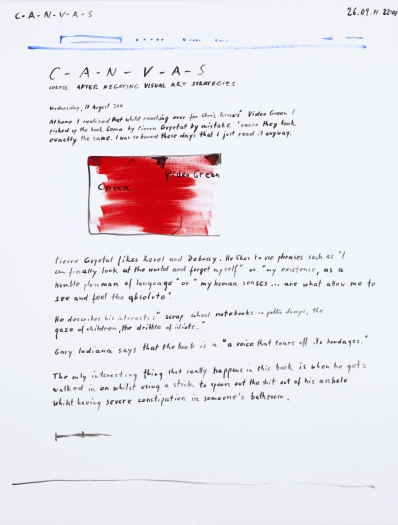 C-A-N-V-A-S
26.09.11
C-A-N-V-A-S
CORPSE AFTER NEGATING VISUAL ART STRATEGIES
Wednesday, 17 August 2011
At home I realized that whilst reaching over for Chris Kraus' Video Green I
picked up the book Coma by Pierre Guyotat by mistake 'cause they look
exactly the same. I was so bored these days that I just read it anyway.
Video Green
Coma
Pierre Guyotat likes Ravel and Debussy. He likes to use phrases such as "I
can finally look at the world and forget myself" or "my existence, as a
humble plowman of language" or "my human senses ... are what allow me to
see and feel the absolute".
He describes his interests: "scrap school notebooks in public dumps, the
gaze of children, the dribble of idiots..."
Gary Indiana says that the book is a "a voice that tears off its bandages."
The only interesting thing that really happens in this book is when he gets
walked in on whilst using a stick to spoon out the shit out of his asshole
whilst having severe constipation in someone's bathroom.